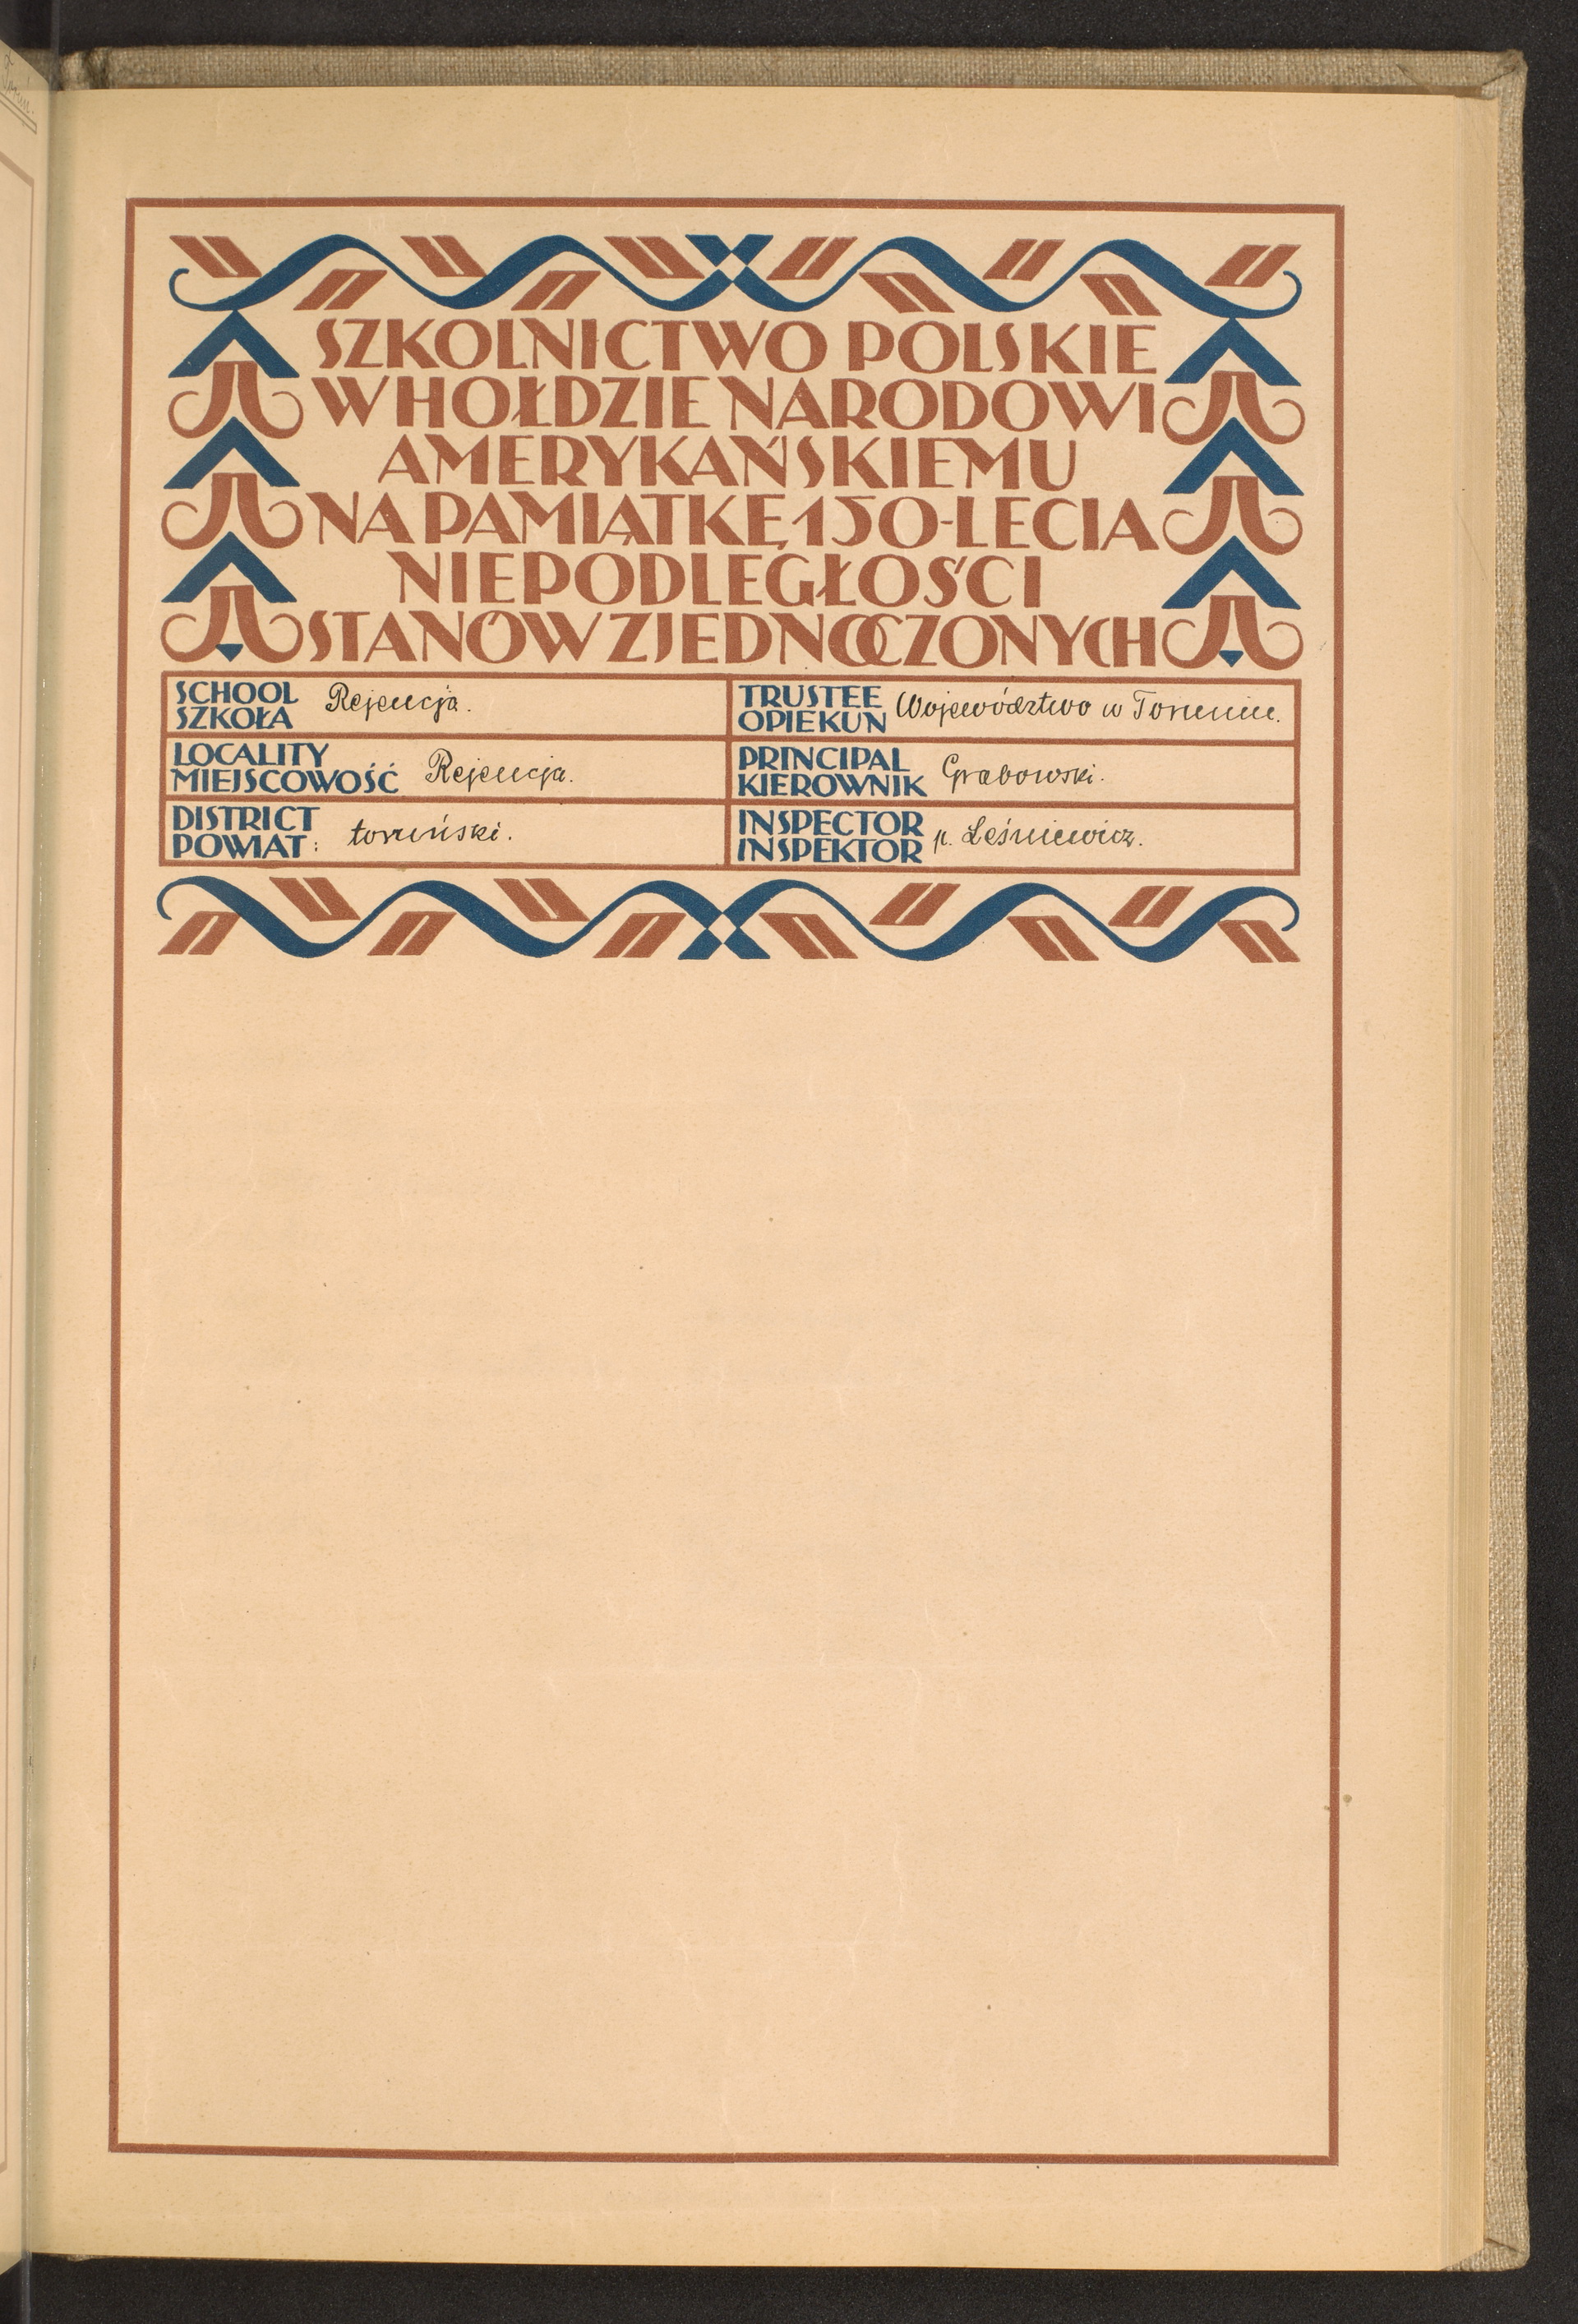 SZKOLNICTWO POLSKIE
W HOŁDZIE NARODOWI
AMERYKAŃSKIEMU
NA PAMIĄTKĘ 150-LECIA
NIEPODLEGŁOŚCI
STANÓW ZJEDNOCZONYCH
SCHOOL
SZKOŁA Rejencja.
TRUSTEE
OPIEKUN Województwo w Toruniu.
LOCALITY
MIEJSCOWOŚĆ Rejencja.
PRINCIPAL
KIEROWNIK Grabowski.
DISTRICT
POWIAT: toruński.
INSPECTOR
INSPEKTOR p. Leśniewicz.